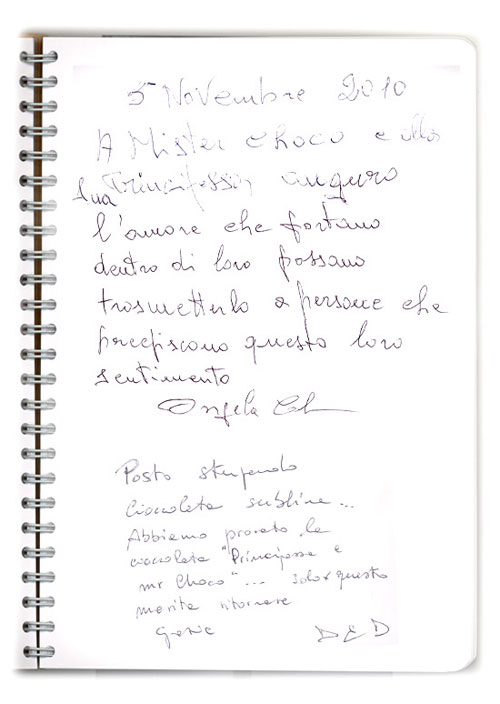 5 Novembre 2010
A Mister Choco e alla
sua Principessa, auguro
l'amore che portano
dentro di loro possano
trasmetterlo a persone che
precepiscono questo loro
sentimento
Angela
Posto stupendo
Cioccolata sublime...
Abbiamo provato la
cioccolata "Principessa e
mr Choco"... solo x questo
merita ritornare
Grazie D E D